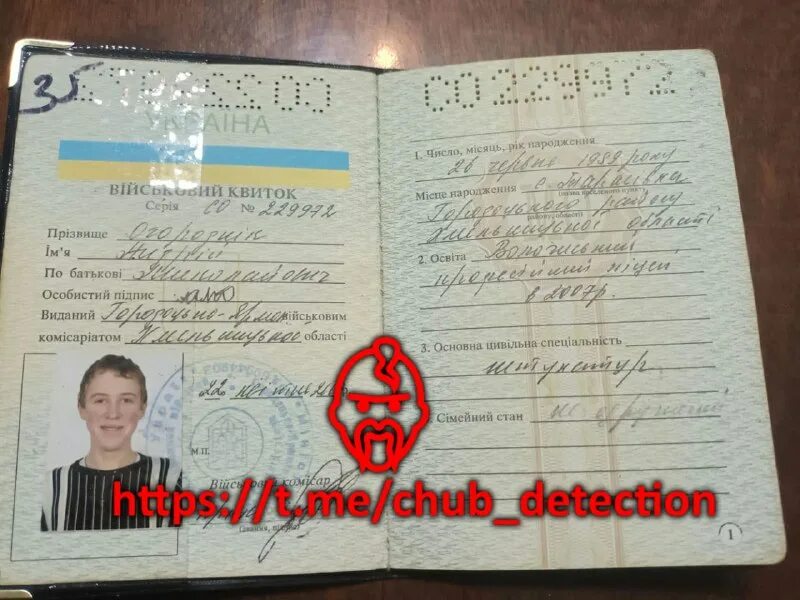 35
УКРАЇНА
ВІЙСЬКОВИЙ КВИТОК
Серія СО № 229972
Прізвище Огороднік
Ім'я Андрій
По батькові Миколайович
Особистий підпис
Виданий Городоцько-Ярмо військовим
комісаріатом Хмельницької області
22
М.П.
Військовий комісар
https://t.me/chub_detection
СО 229972
1. Число, місяць, рік народження
26 червня 1989 року
Місце народження с.
Городоцького району
Хмельницької області
2. Освіта
професійний ліцей
в 2007р.
3. Основна цивільна спеціальність
штукатур
Сімейний стан не одружений
1